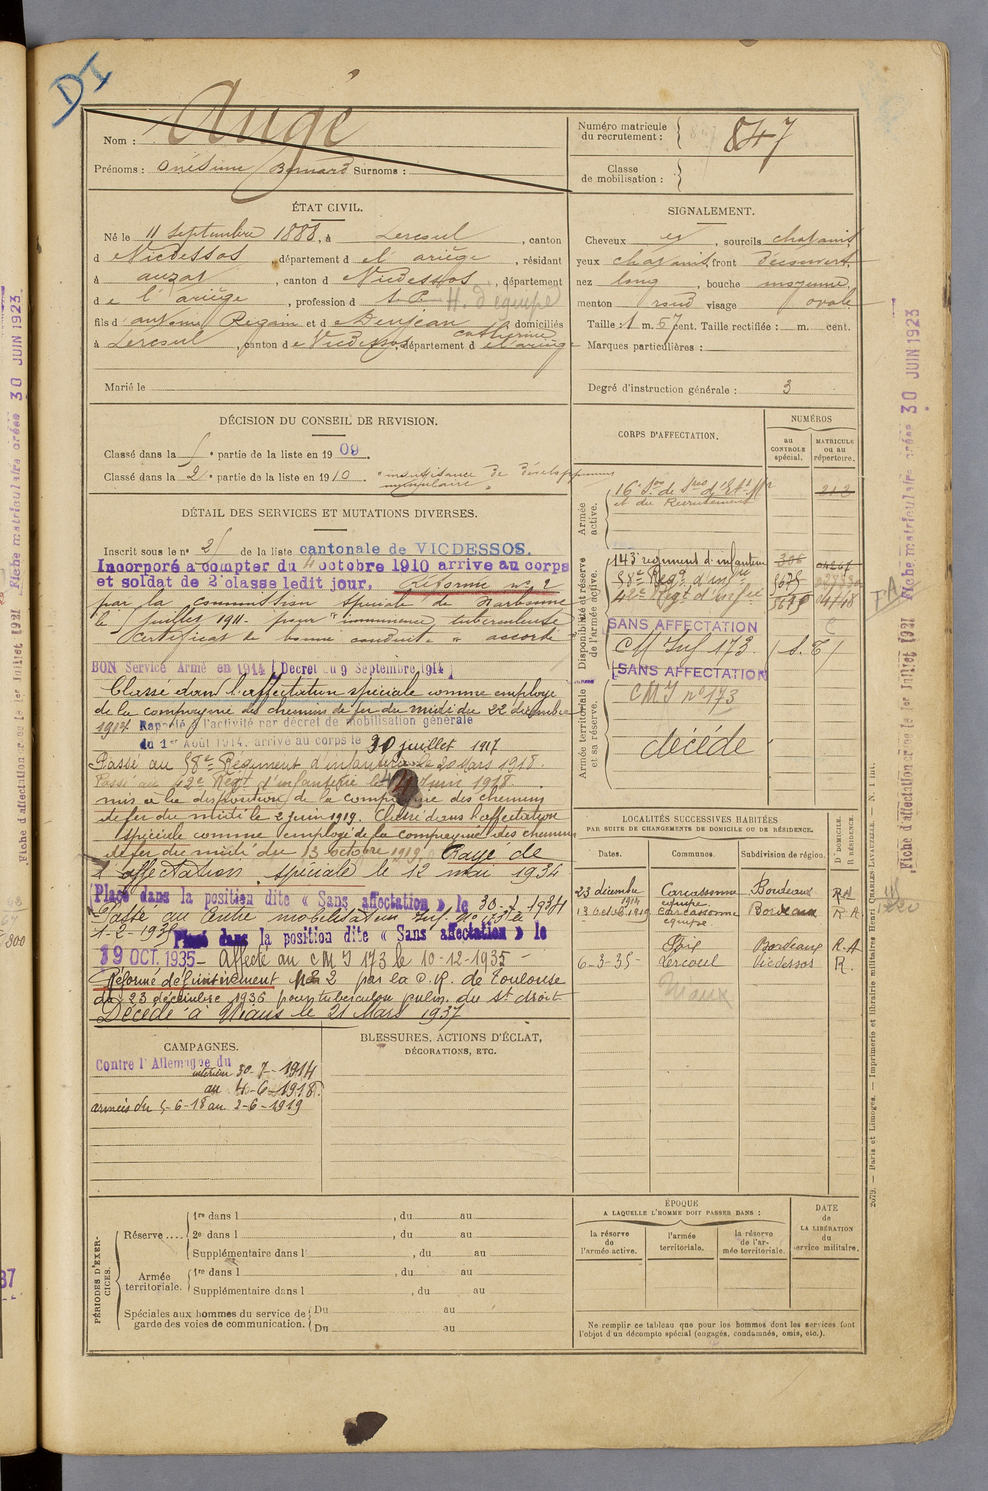 DI
Nom : Augé
Prénoms : Onésime Bernard Surnoms :
Numéro matricule du recrutement : 847
Classe de mobilisation :
ÉTAT CIVIL.
Né le 11 septembre 1888, à Lercoul, canton
d Vicdessos, département de l'ariège, résidant
à auzat, canton d Vicdessos, département
de l'ariège, profession d H. d'équipe
fils d' antoine Regain et d Denjean catherine domiciliés
à Lercoul, canton de Vicdessos, département d el'ariège
Marié le
SIGNALEMENT.
Cheveux , sourcils chatains
yeux chatains, front découvert
nez long, bouche moyenne
menton rond visage ovale
Taille : 1 m. 57 cent. Taille rectifiée : m. cent.
Marques particulières :
Degré d'instruction générale : 3
DÉCISION DU CONSEIL DE REVISION.
Classé dans la 5e partie de la liste en 1909.
Classé dans la 2e partie de la liste en 1910. "insuffisance de développement
musculaire"
DÉTAIL DES SERVICES ET MUTATIONS DIVERSES.
Inscrit sous le n° de la liste cantonale de VICDESSOS.
Incorporé à compter du 4 octobre 1910 arrivé au corps
et soldat de 2e classe ledit jour. Réformé n° 2
par la commission spéciale de Narbonne
le juillet 1911 pour tuberculeuse
Certificat de bonne conduite " accordé
BON Service Armé en 1914 (Décret du 9 Septembre 1914)
Classé dans l'affectation spéciale comme employé
de la compagnie des chemins de fer du midi du 22 décembre
1914. Rappelé à l'activité par décret de mobilisation générale
du 1er Août 1914, arrivé au corps le 30 juillet 1917
Passé au 58e Régiment d'infanterie le 20 Mars 1918.
Passé au 42e Régt d'infanterie le 4 Juin 1918.
mis à la disposition de la compagnie des chemins
de fer du midi le 2 juin 1919. Classé dans l'affectation
spéciale comme employé de la compagnie des chemins
de fer du midi du 13 octobre 1919. Rayé de
l'affectation spéciale le 12 mai 1934
Placé dans la position dite « Sans affectation » le 30-5-1934
Passé au Centre mobilisation Inf. N° 173 le
1-2-1935 Placé dans la position dite « Sans affectation » le
19 OCT. 1935 - Affecté au CMI 173 le 10-12-1935 -
Réformé définitivement N° 2 par la C.R. de Toulouse
du 23 décembre 1936 pour tuberculose pulm. du St droit
Décédé à Niaux le 21 Mars 1937
CORPS D'AFFECTATION.
NUMÉROS
au CONTROLE spécial.
MATRICULE OU AU répertoire.
Armée active.
16e Son de Sres d'Et. Mr 212
et du Recrutement
Disponibilité et réserve de l'armée active.
143e régiment d'infanterie
58e Regt d'infie
42e Regt d'infie
SANS AFFECTATION
CM Inf 173 (S.T)
SANS AFFECTATION
Armée territoriale et sa réserve.
CMI n° 173
décédé
LOCALITÉS SUCCESSIVES HABITÉES
PAR SUITE DE CHANGEMENTS DE DOMICILE OU DE RÉSIDENCE.
Dates. Communes. Subdivision de région. D. DOMICILE. R. RÉSIDENCE.
23 décembre 1914 Carcassonne Bordeaux R.A
équipe
13 octobre 1919 Carcassonne Bordeaux R.A
équipe
Foix Bordeaux R.A
6-3-35 Lercoul Vicdessos R.
Niaux
CAMPAGNES.
Contre l'Allemagne du
intérieur 30-7-1914
au 4-6-1918.
armées du 5-6-18 au 2-6-1919
BLESSURES, ACTIONS D'ÉCLAT,
DÉCORATIONS, ETC.
PÉRIODES D'EXERCICES.
Réserve ....
1re dans l , du au
2e dans l , du au
Supplémentaire dans l , du au
Armée territoriale.
1re dans l , du au
Supplémentaire dans l , du au
Spéciales aux hommes du service de garde des voies de communication.
Du au
Du au
ÉPOQUE
A LAQUELLE L'HOMME DOIT PASSER DANS :
la réserve de l'armée active.
l'armée territoriale.
la réserve de l'armée territoriale.
DATE de LA LIBÉRATION du service militaire.
Ne remplir ce tableau que pour les hommes dont les services font
l'objet d'un décompte spécial (engagés, condamnés, omis, etc.).
Fiche d'affectation créée le 1er Juillet 1921 Fiche matriculaire créée 30 JUIN 1923
2079. — Paris et Limoges. — Imprimerie et librairie militaires Henri CHARLES-LAVAUZELLE. — N. 1 int.
Fiche d'affectation créée le 1er Juillet 1921 Fiche matriculaire créée 30 JUIN 1923.